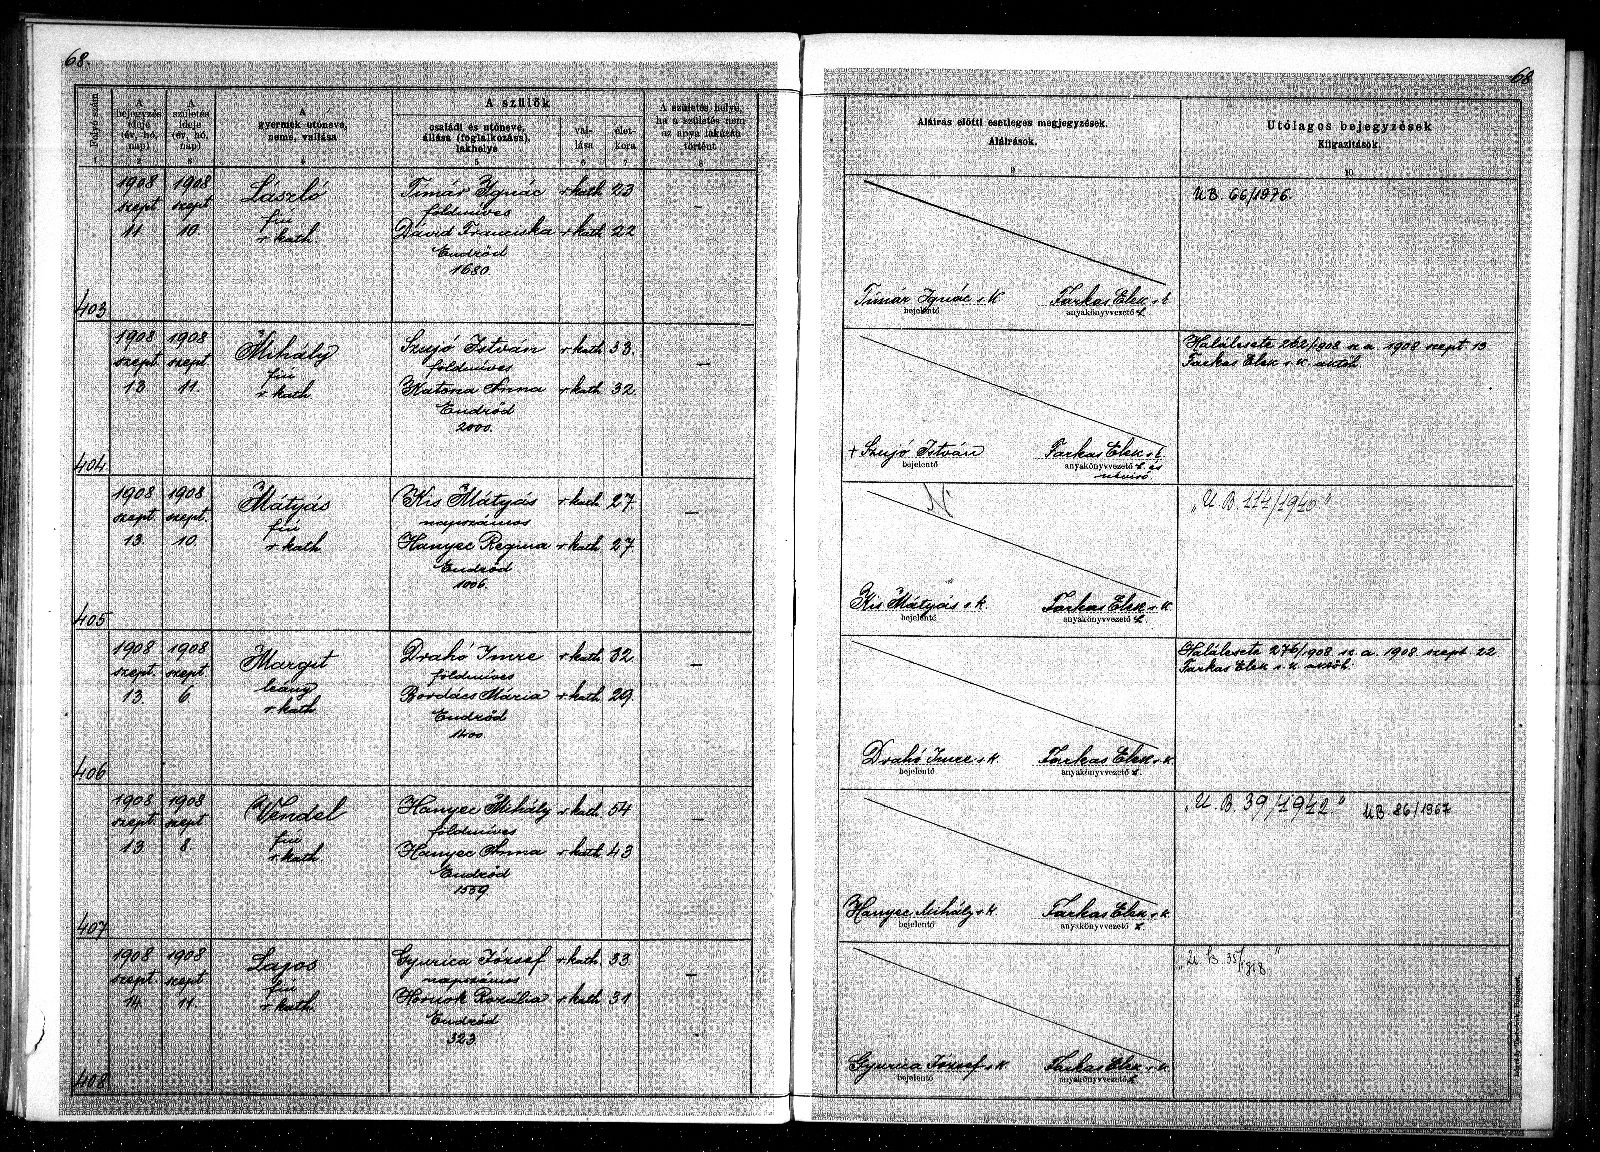 68.
68
Folyó szám
A bejegyzés ideje (év, hó, nap)
A születés ideje (év, hó, nap)
A gyermek utóneve, neme, vallása
A szülők
családi és utóneve, állása (foglalkozása), lakhelye
vallása
életkora
A születés helye, ha a születés nem az anya lakásán történt
Aláírás előtti esetleges megjegyzések.
Aláírások.
Utólagos bejegyzések
Kiigazítások.
1 2 3 4 5 6 7 8 9 10
1908 1908 László Timár Ignác r. kath 23
szept szept fiú földmíves
11. 10. r. kath Dávid Franciska r. kath 22
Endrőd
1680
403
Timár Ignác s. k. Farkas Elek s. k.
bejelentő anyakönyvvezető h.
U.B. 66/1976.
1908 1908 Mihály Szujó István r. kath 38.
szept. szept. fiú földmíves
13. 11. r. kath. Katona Anna r. kath 32.
Endrőd
2000.
404
+ Szujó István Farkas Elek s. k.
bejelentő anyakönyvvezető h. és
névíró.
Halálesete 262/1908 sz. a. 1908 szept. 13.
Farkas Elek s. k. aakvh.
1908 1908 Mátyás Kis Mátyás r. kath 27.
szept. szept. fiú napszámos
13. 10. r. kath. Hanyec Regina r. kath 27
Endrőd
1006.
405
Kis Mátyás s. k. Farkas Elek s. k.
bejelentő anyakönyvvezető h.
„U. B. 114/1940”
1908 1908 Margit Drahó Imre r. kath 32
szept. szept leány földmíves
13. 6. r. kath. Bordács Mária r. kath 29.
Endrőd
1400.
406
Drahó Imre s. k. Farkas Elek s. k.
bejelentő anyakönyvvezető h.
Halálesete 276/1908 sz. a. 1908. szept. 22
Farkas Elek s. k. aakvh.
1908 1908 Vendel Hanyec Mihály r. kath 54
szept. szept fiú földmíves
13 8. r. kath Hanyec Anna r. kath 43
Endrőd
1559.
407
Hanyec Mihály s. k. Farkas Elek s. k.
bejelentő anyakönyvvezető h.
„U. B. 39/1942.” UB 86/1967
1908 1908 Lajos Gyurica József r. kath. 33
szept. szept fiú napszámos
14. 11. r. kath. Hornok Rozália r. kath 31
Endrőd
323
408
Gyurica József s. k. Farkas Elek s. k.
bejelentő anyakönyvvezető h.